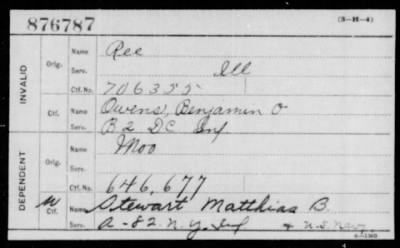 876787
(3-H-4)
INVALID
Orig. Name Ree
Serv. Ill
Ctf. No. 706355
Ctf. Name Owens, Benjamin O
Serv. B 2 DC Inf
DEPENDENT
Orig. Name Moo
Serv.
Ctf. No. 646,677
W Ctf. Name Stewart Matthias B.
Serv. A-82 N.Y. Inf & U.S. Navy